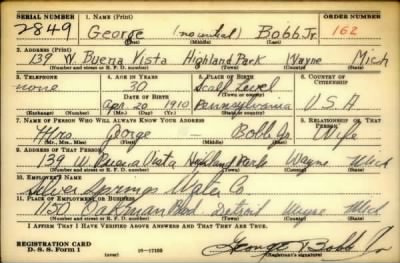 SERIAL NUMBER 1. NAME (Print) ORDER NUMBER
2849 George (no initial) Bobb Jr. 162
(First) (Middle) (Last)
2. ADDRESS (Print)
139 W. Buena Vista Highland Park Wayne Mich
(Number and street or R. F. D. number) (Town) (County) (State)
3. TELEPHONE 4. AGE IN YEARS 5. PLACE OF BIRTH 6. COUNTRY OF CITIZENSHIP
none 30 Scalp Level
DATE OF BIRTH (Town or county)
Apr. 20 1910 Pennsylvania U.S.A
(Exchange) (Number) (Mo.) (Day) (Yr.) (State or country)
7. NAME OF PERSON WHO WILL ALWAYS KNOW YOUR ADDRESS 8. RELATIONSHIP OF THAT PERSON
Mrs George — Bobb Jr. Wife
(Mr., Mrs., Miss) (First) (Middle) (Last)
9. ADDRESS OF THAT PERSON
139 W. Buena Vista Highland Park Wayne Mich
(Number and street or R. F. D. number) (Town) (County) (State)
10. EMPLOYER'S NAME
Silver Springs Water Co
11. PLACE OF EMPLOYMENT OR BUSINESS
Oakman Blvd. Detroit Wayne Mich
(Number and street or R. F. D. number) (Town) (County) (State)
I AFFIRM THAT I HAVE VERIFIED ABOVE ANSWERS AND THAT THEY ARE TRUE.
REGISTRATION CARD
D. S. S. Form 1 (over) George Bobb Jr
(Registrant's signature)